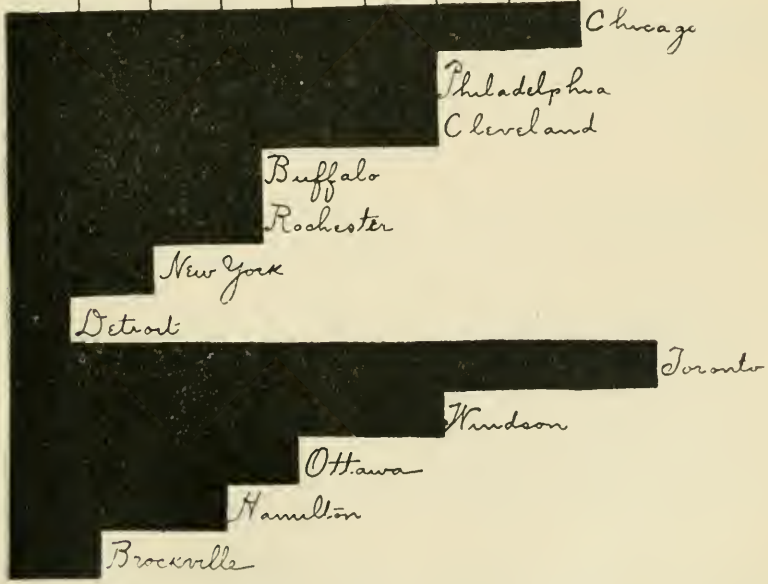 Chicago
Philadelphia
Cleveland
Buffalo
Rochester
New York
Detroit
Toronto
Windson
Ottawa
Hamilton
Brockville